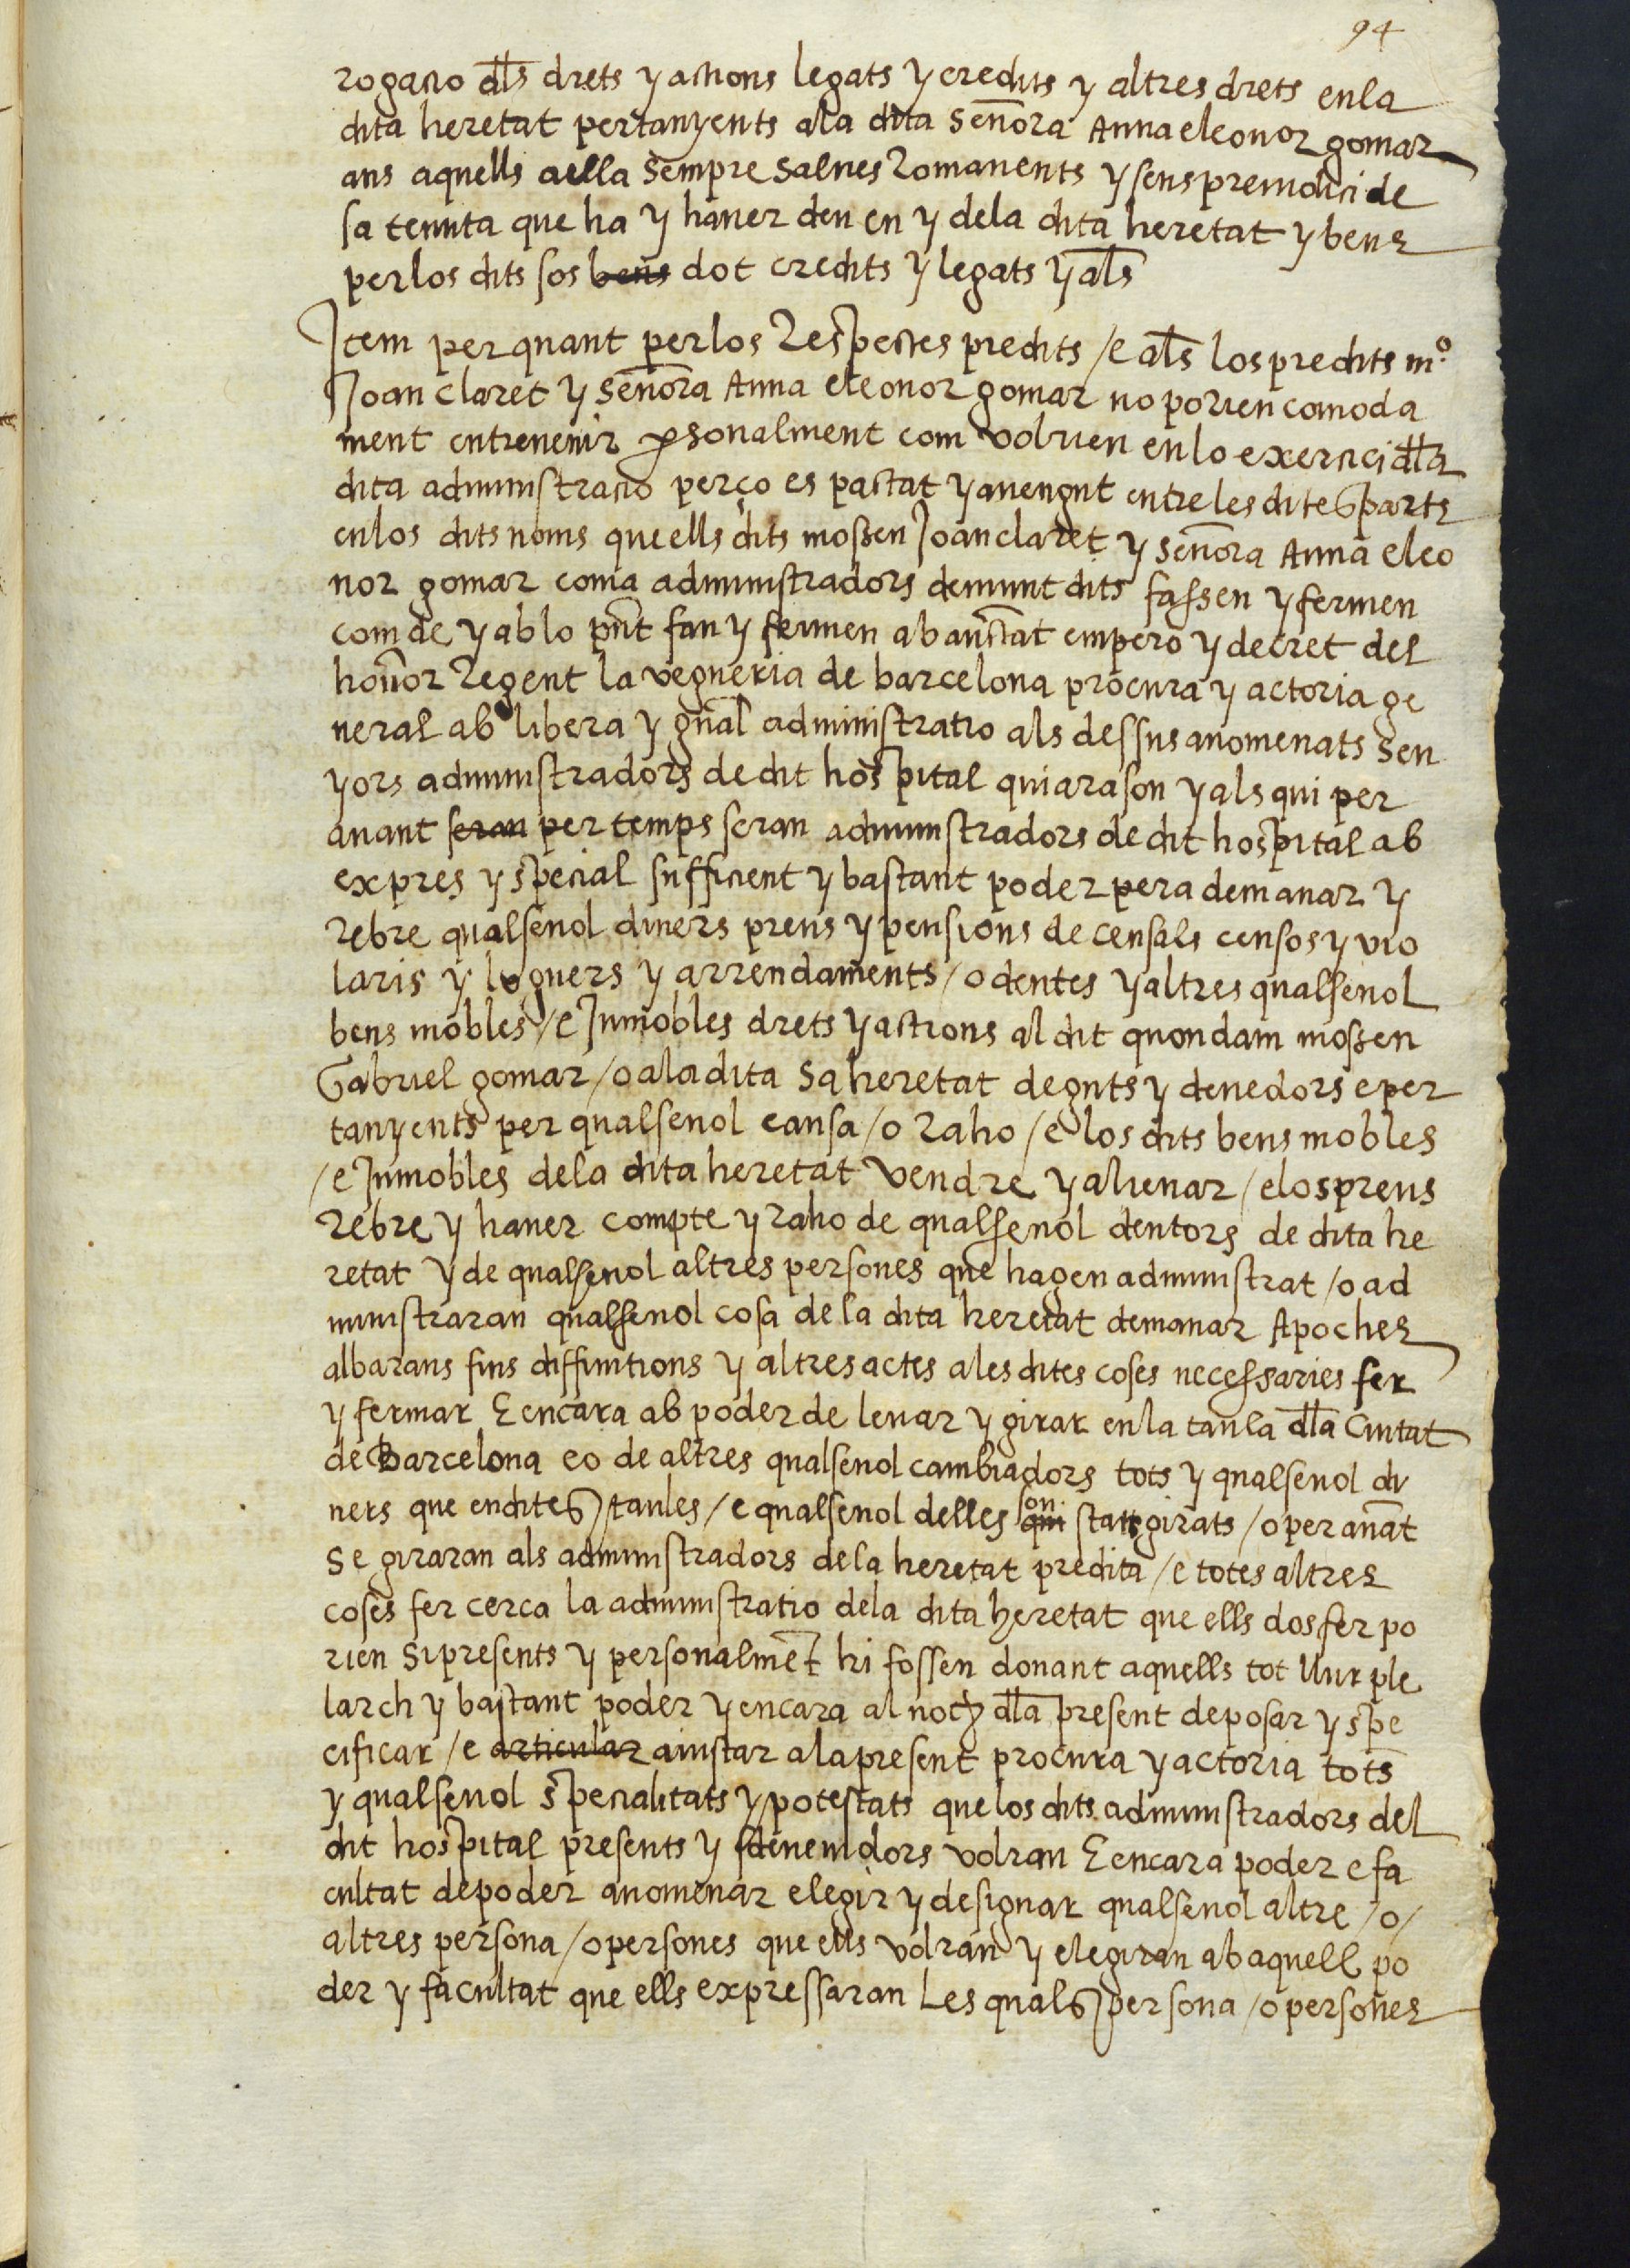 94
rogacio dls drets y actions legats y credits y altres drets en la
dita heretat pertanyents ala dita Sen̄ora Anna eleonor gomar
ans aquells aella Sempre Salues Romanents y sens preiudici de
sa tenuta que ha y hauer deu en y dela dita heretat y bens
per los dits sos ~~bens~~ dot credits y legats y als
Item per quant per los Respectes predits /e als los predits m.º
Joan claret y Sen̄ora Anna eleonor gomar no porien comoda
ment entreuenir psonalment com voldrien en lo exercici dla
dita administracio perço es pactat y auengut entre les dites parts
en los dits noms que ells dits mossen Joan claret y Sen̄ora Anna eleo
nor gomar coma administradors demunt dits fassen y fermen
com de y ab lo pn̄t fan y fermen ab auctat empero y decret del
hon̄or Regent la vegueria de barcelona procura y actoria ge
neral ab libera y gn̄al administratio als dessus anomenats Sen
yors administradors de dit hospital qui ara son y als qui per
auant ~~seran~~ per temps seran administradors de dit hospital ab
expres y special sufficient y bastant poder pera demanar y
rebre qualseuol diners preus y pensions de censals censos y vio
laris y loguers y arrendaments /o deutes y altres qualseuol
bens mobles /e Inmobles drets y actions al dit quondam mossen
Gabriel gomar /o ala dita Sa heretat deguts y deuedors e per
tanyents per qualseuol causa /o Raho /e los dits bens mobles
/e Inmobles dela dita heretat vendre y alienar /e los preus
Rebre y hauer compte y Raho de qualseuol deutors de dita he
retat y de qualseuol altres persones que hagen administrat /o ad
ministraran qualseuol cosa de la dita heretat demanar Apoches
albarans fins diffinitions y altres actes ales dites coses necessaries fer
y fermar E encara ab poder de leuar y girar en la taula dla Ciutat
de Barcelona eo de altres qualseuol cambiadors tots y qualseuol di
ners que en dites taules /e qualseuol delles ~~qui~~ son stats girats /o per auāt
Se giraran als administradors dela heretat predita /e totes altres
coses fer cerca la administratio dela dita heretat que ells dos fer po
rien Si presents y personalmēt hi fossen donant aquells tot llur ple
larch y bastant poder y encara al noty dla present de posar y spe
cificar /e ~~articular~~ aiustar ala present procura y actoria tots
y qualseuol specialitats y potestats que los dits administradors del
dit hospital presents y sdeuenidors voldran E encara poder e fa
cultat de poder anomenar elegir y designar qualseuol altre /o/
altres persona /o persones que ells voldran y elegiran ab aquell po
der y facultat que ells expressaran Les quals persona /o persones